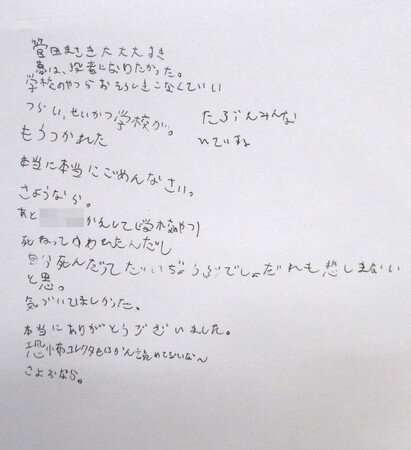 菅田まさき大大大すき
夢は、役者になりたかった。
学校のやつらおそうしきこなくていい
つらい、せいかつ学校が。
もうつかれた
たろぶんみんな
いている
本当に本当にごめんなさいっ
さようなら。
あと かえして(学校のやつ)
死ねってゆわれたんだし
自分死んだってだいじょうぶでしょだれも悲しまない
と思。
気づいてほしかった。
本当にありがとうございました。
恐怖コレクター かん読めてないな〜
さよおなら。